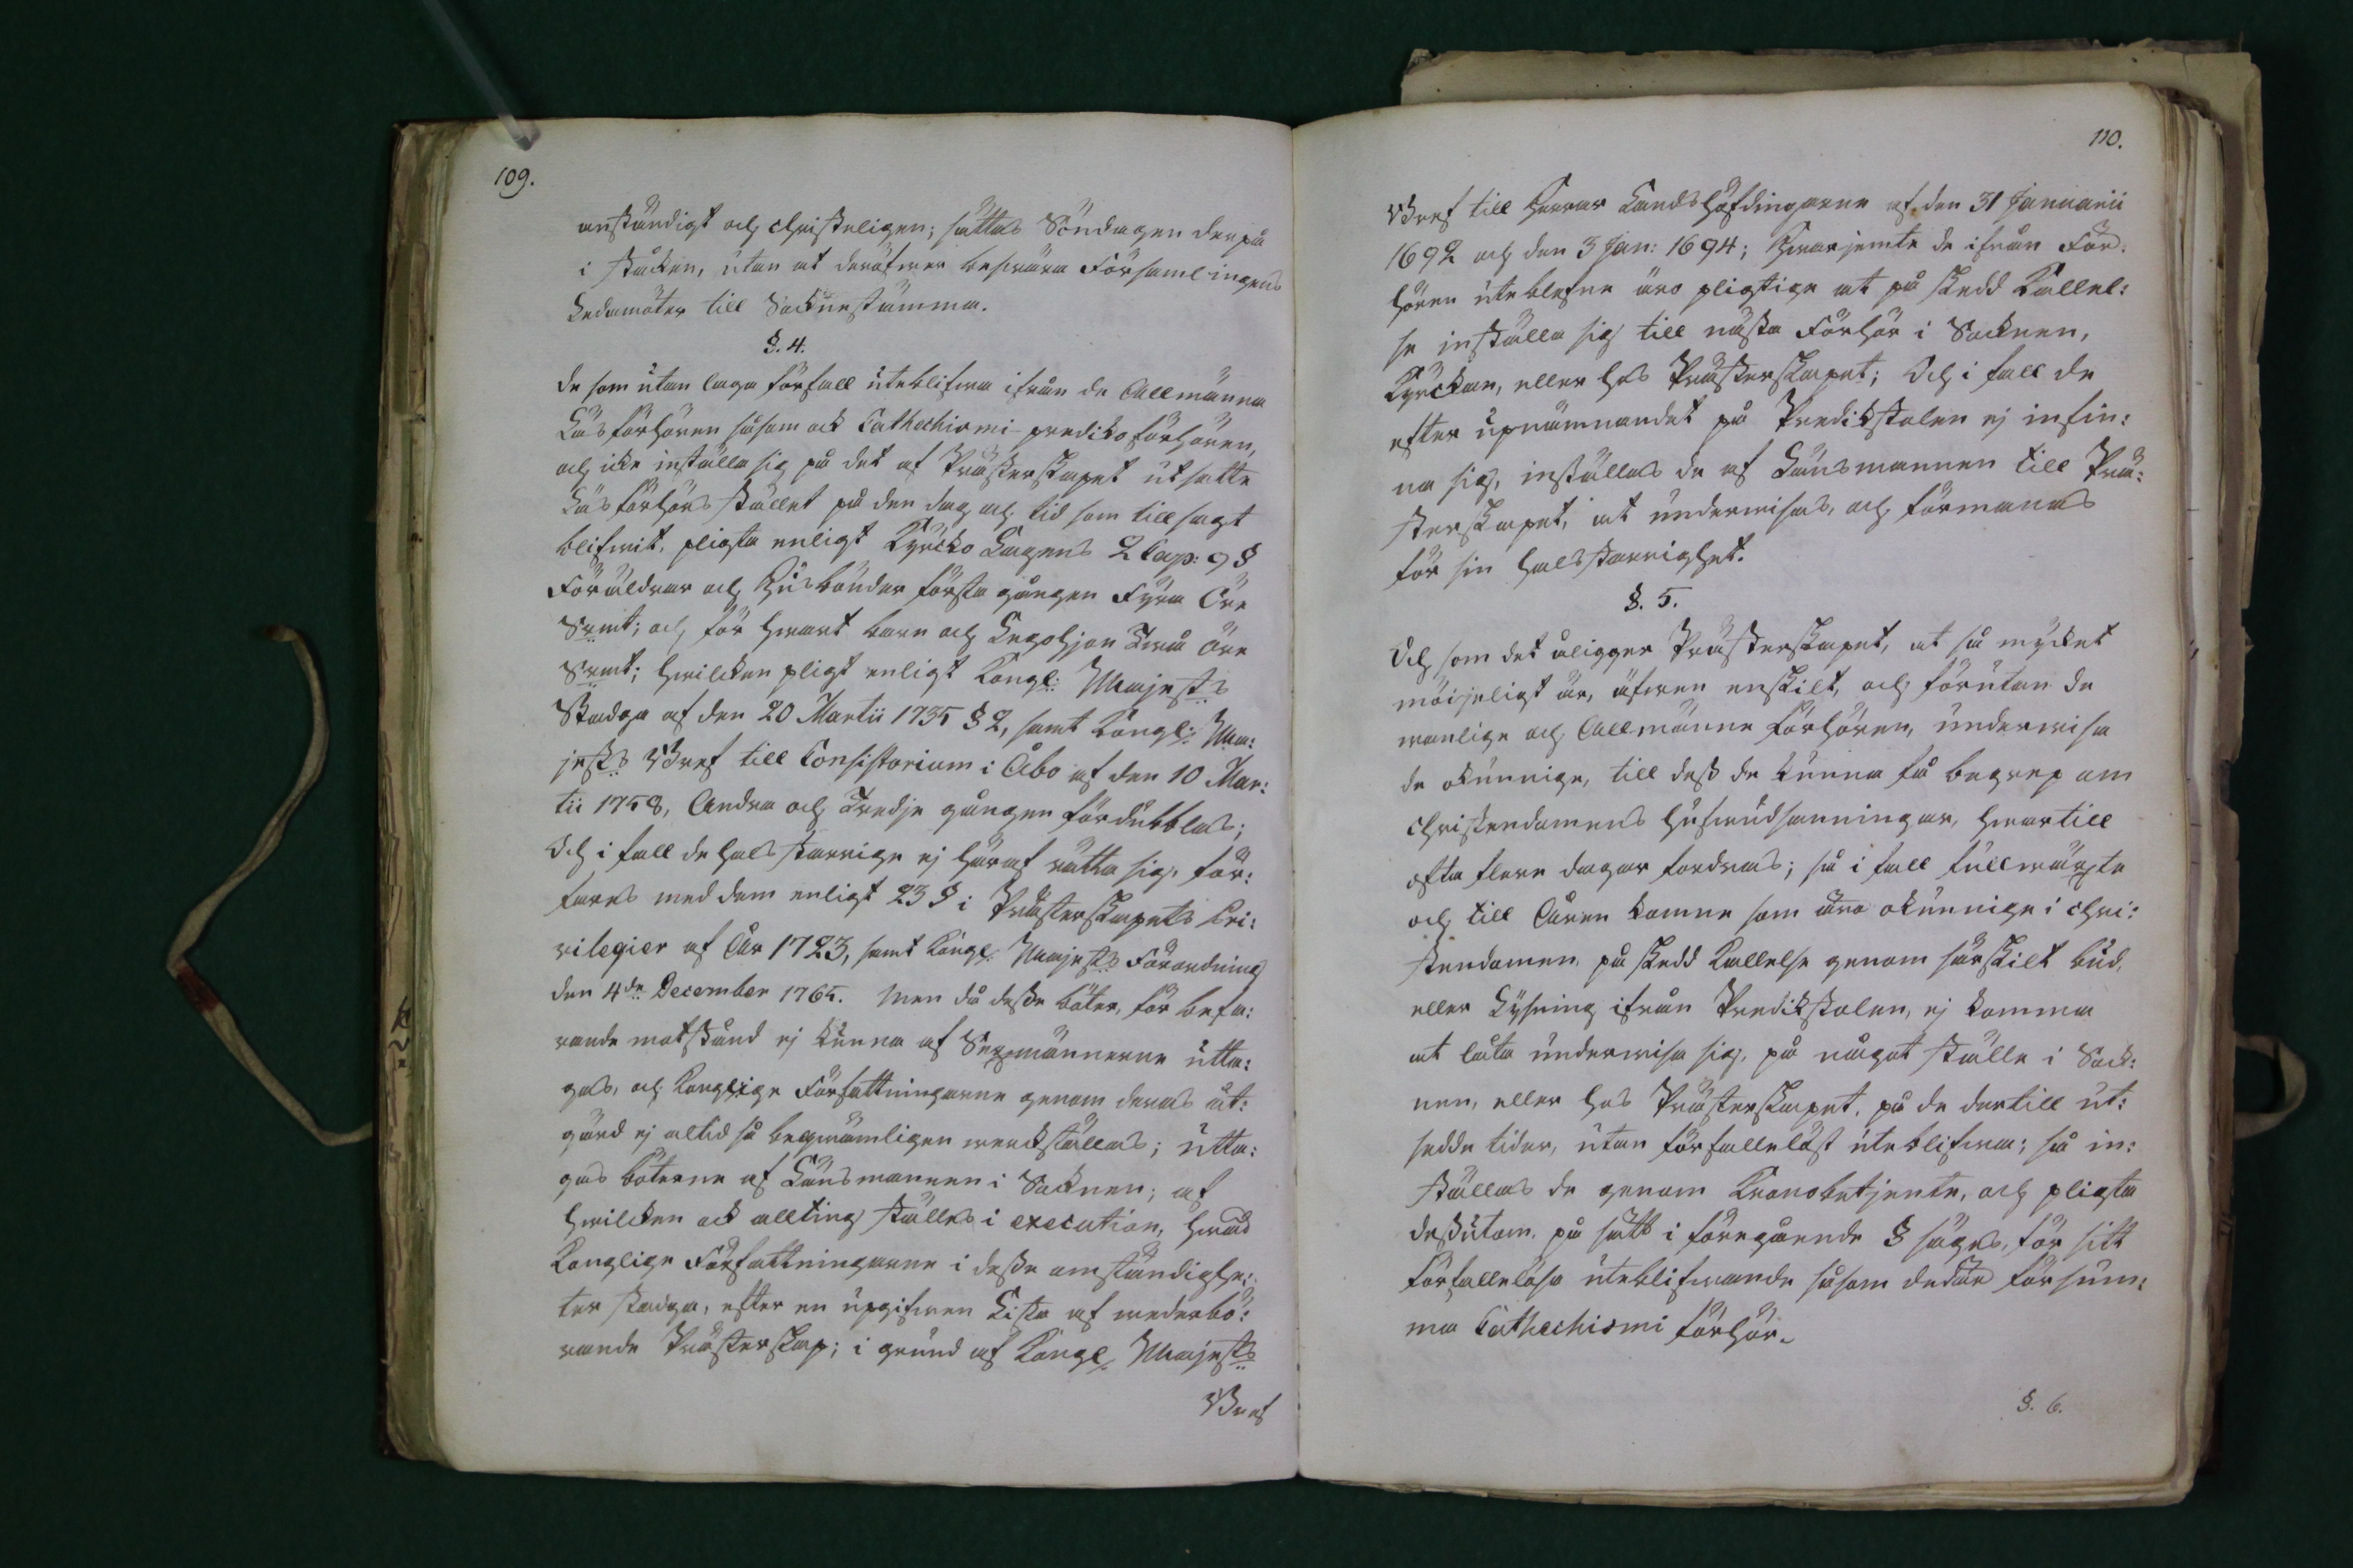 109.
anständigt och christeligen; sättas Söndagen derpå
i ståcken, utan at deröfwer beswära Församlingens
Ledamöter till Sockenestämma.
§. 4.
De som utan laga förfall uteblifwa ifrån de Allmänna
Läsförhören såsom ock Cathechismi-predikoförhören,
och icke inställa sig på det af Prästerskapet utsatte
Läsförhörs stället på den dag och tid som tillsagt
blifwit, pligta enligt Kyrcko Lagens 2 Cap: 9 §
Föräldrar och Husbönder första gången Fyra Öre
Srmt; och för hwart barn och Legohjon Twå Öre
Srmt; hwilcken pligt enligt Kongl: Majesets
Stadga af den 20 Martii 1735 § 2, samt Kongl: Ma:
jesets Bref till Consistorium i Åbo af den 10 Mar:
tii 1758, Andra och Tredje gången fördubblas;
Och i fall de halsstarrige ej häraf rätta sig, för:
fares med dem enligt 23 § i Prästerskapets Pri:
vilegier af År 1723, samt Kongl: Majesets Förordning
den 4de December 1765. Men då desse böter, för befa:
rande motstånd ej kunna af Sexmännerne utta:
gas, och Konglige Författningarne genom deras åt:
gärd ej altid så beqwämligen werckställas; utta:
gas böterne af Länsmannen i Socknen; af
hwilcken ock allting ställes i execution, hwad
Konglige Författningarne i desse omständighe:
ter stadga, efter en upgifwen Lista af wederbö:
rande Prästerskap; i grund af Kongl: Majesets
Bref
110.
Bref till Herrar Landshöfdingarne af den 31 Januarii
1692 och den 3 Jan: 1694; Hwarjemte de ifrån För:
hören uteblefne äro pligtige at på skedd Kallel:
se inställa sig till nästa Förhör i Socknen,
Kyrckan, eller hos Prästerskapet; Och i fall de
efter upnämnandet på Predikstolen ej infin:
na sig, inställas de af Länsmannen till Prä:
sterskapet, at underwisas, och förmanas
för sin halsstarrighet.
§. 5.
Och som det åligger Prästerskapet, at så mycket
möijeligt är, äfwen enskilt, och förutan de
wanlige och Allmänne Förhören, underwisa
de okunnige, till dess de kunna få begrep om
Christendomens hufwudsanningar, hwartill
ofta flere dagar fordras; så i fall fullwäxte
och till Åren komne som äro okunnige i Chri:
stendomen, på skedd Kallelse genom särskilt bud,
eller Lysning ifrån Predikstolen, ej komma
at låta underwisa sig, på något ställe i Sock:
nen, eller hos Prästerskapet, på de dertill ut:
sedde tider, utan förfallelöst uteblifwa; så in:
ställas de genom Kronobetjente, och pligta
dessutom, på sätt i föregående § säges, för sitt
förfallelösa uteblifwande såsom de der försum:
ma Cathechismi förhör.
§. 6.